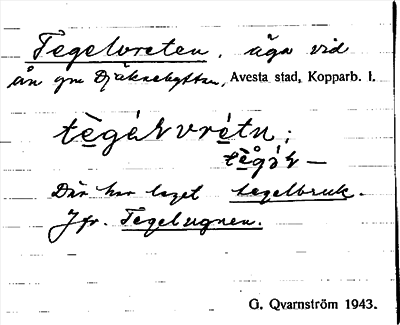 Tegelvreten, äga vid
ån gm Djäknehyttan, Avesta stad, Kopparb. l.
tègálvrétn;
tègål –
Där har legat tegelbruk.
Jfr. Tegelugnen.
G. Qvarnström 1943.